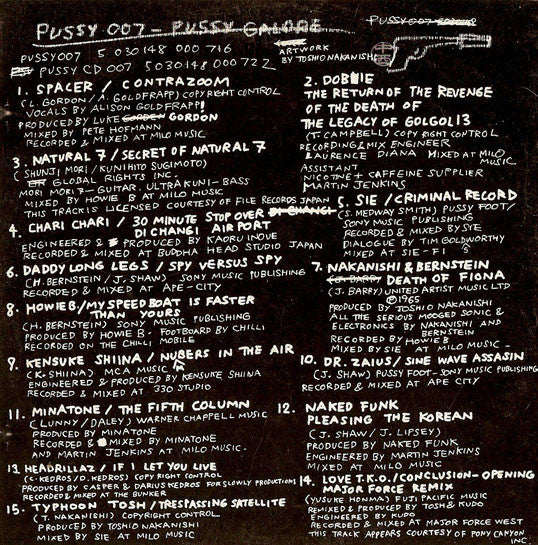 PUSSY 007 - PUSSY GALORE
PUSSY 007
ARTWORK
BY TOSHIO NAKANISHI
PUSSY007 5 030148 000 716
PUSSY CD 007 5030148 000 722
1. SPACER / CONTRAZOOM
(L. GORDON / A. GOLDFRAPP) COPYRIGHT CONTROL
VOCALS BY ALISON GOLDFRAPP!
PRODUCED BY LUKE GORDEN GORDON
MIXED BY PETE HOFMANN
RECORDED AT MILO MUSIC.
2. DOBIE
THE RETURN OF THE REVENGE
OF THE DEATH OF
THE LEGACY OF GOLGOL 13
(T. CAMPBELL) COPYRIGHT CONTROL
RECORDING & MIX ENGINEER
LAURENCE DIANA MIXED AT MILO
MUSIC.
ASSISTANT
NICOTNE + CAFFEINE SUPPLIER
MARTIN JENKINS
3. NATURAL 7 / SECRET OF NATURAL 7
(SHUNJI MORI / KUNIHITO SUGIMOTO)
GLOBAL RIGHTS INC.
MORI MORI 7 - GUITAR. ULTRA KUNI - BASS
MIXED BY HOWIE B AT MILO MUSIC
THIS TRACK IS LICENSED COURTESY OF FILE RECORDS JAPAN
4. CHARI CHARI / 30 MINUTE STOP OVER DI CHANGI
DI CHANGI AIRPORT
ENGINEERED & PRODUCED BY KAORU INOUE
RECORDED AT BUDDHA HEAD STUDIO JAPAN
5. SIE / CRIMINAL RECORD
(S. MEDWAY SMITH) PUSSY FOOT/
SONY MUSIC PUBLISHING
RECORDED & MIXED BY SIE
DIALOGUE BY TIM GOLDWORTHY
MIXED AT SIE-FI S
6. DADDY LONG LEGS / SPY VERSUS SPY
(H. BERNSTEIN / J. SHAW) SONY MUSIC PUBLISHING
RECORDED & MIXED AT APE-CITY
7. NAKANISHI & BERNSTEIN
(J. BARRY) DEATH OF FIONA
(J. BARRY) UNITED ARTIST MUSIC LTD
©1965
PRODUCED BY TOSHIO NAKANISHI
ALL THE SERIOUS MOOGED SONIC &
ELECTRONICS BY NAKANISHI AND
BERNSTEIN
RECORDED BY HOWIE B
MIXED BY SIE AT MILO MUSIC -
8. HOWIE B. / MY SPEED BOAT IS FASTER
THAN YOURS
(H. BERNSTEIN) SONY MUSIC PUBLISHING
PRODUCED BY HOWIE B. FOOTBOARD BY CHILLI
RECORDED ON THE CHILLI MOBILE
9. KENSUKE SHIINA / NUBERS IN THE AIR
(K. SHIINA) MCA MUSIC
ENGINEERED & PRODUCED BY KENSUKE SHIINA
RECORDED & MIXED AT 330 STUDIO
10. DR. ZAIUS / SINE WAVE ASSASIN
(J. SHAW) PUSSY FOOT - SONY MUSIC PUBLISHING
RECORDED & MIXED AT APE CITY
11. MINATONE / THE FIFTH COLUMN
(LUNNY / DALEY) WARNER CHAPPELL MUSIC
PRODUCED BY MINATONE
RECORDED & MIXED BY MINATONE
AND MARTIN JENKINS AT MILO MUSIC.
12. NAKED FUNK
PLEASING THE KOREAN
(J. SHAW / J. LIPSEY)
PRODUCED BY NAKED FUNK
ENGINEERED BY MARTIN JENKINS
MIXED AT MILO MUSIC
13. HEADRILLAZ / IF I LET YOU LIVE
(C. KEDROS / D. KEDROS) COPYRIGHT CONTROL
PRODUCED BY CASPER & DARIUS KEDROS FOR SLOWLY PRODUCTIONS
RECORDED & MIXED AT THE BUNKER
14. LOVE T.K.O. / CONCLUSION - OPENING
MAJOR FORCE REMIX
(YUSUKE HONMA) FUJI PACIFIC MUSIC
REMIXED & PRODUCED BY TOSH & KUDO
ENGINEERED BY KUDO
RECORDED & MIXED AT MAJOR FORCE WEST
THIS TRACK APPEARS COURTESY OF PONY CANYON
INC.
15. TYPHOON TOSH / TRESPASSING SATELLITE
(T. NAKANISHI) COPYRIGHT CONTROL
PRODUCED BY TOSHIO NAKANISHI
MIXED BY SIE AT MILO MUSIC